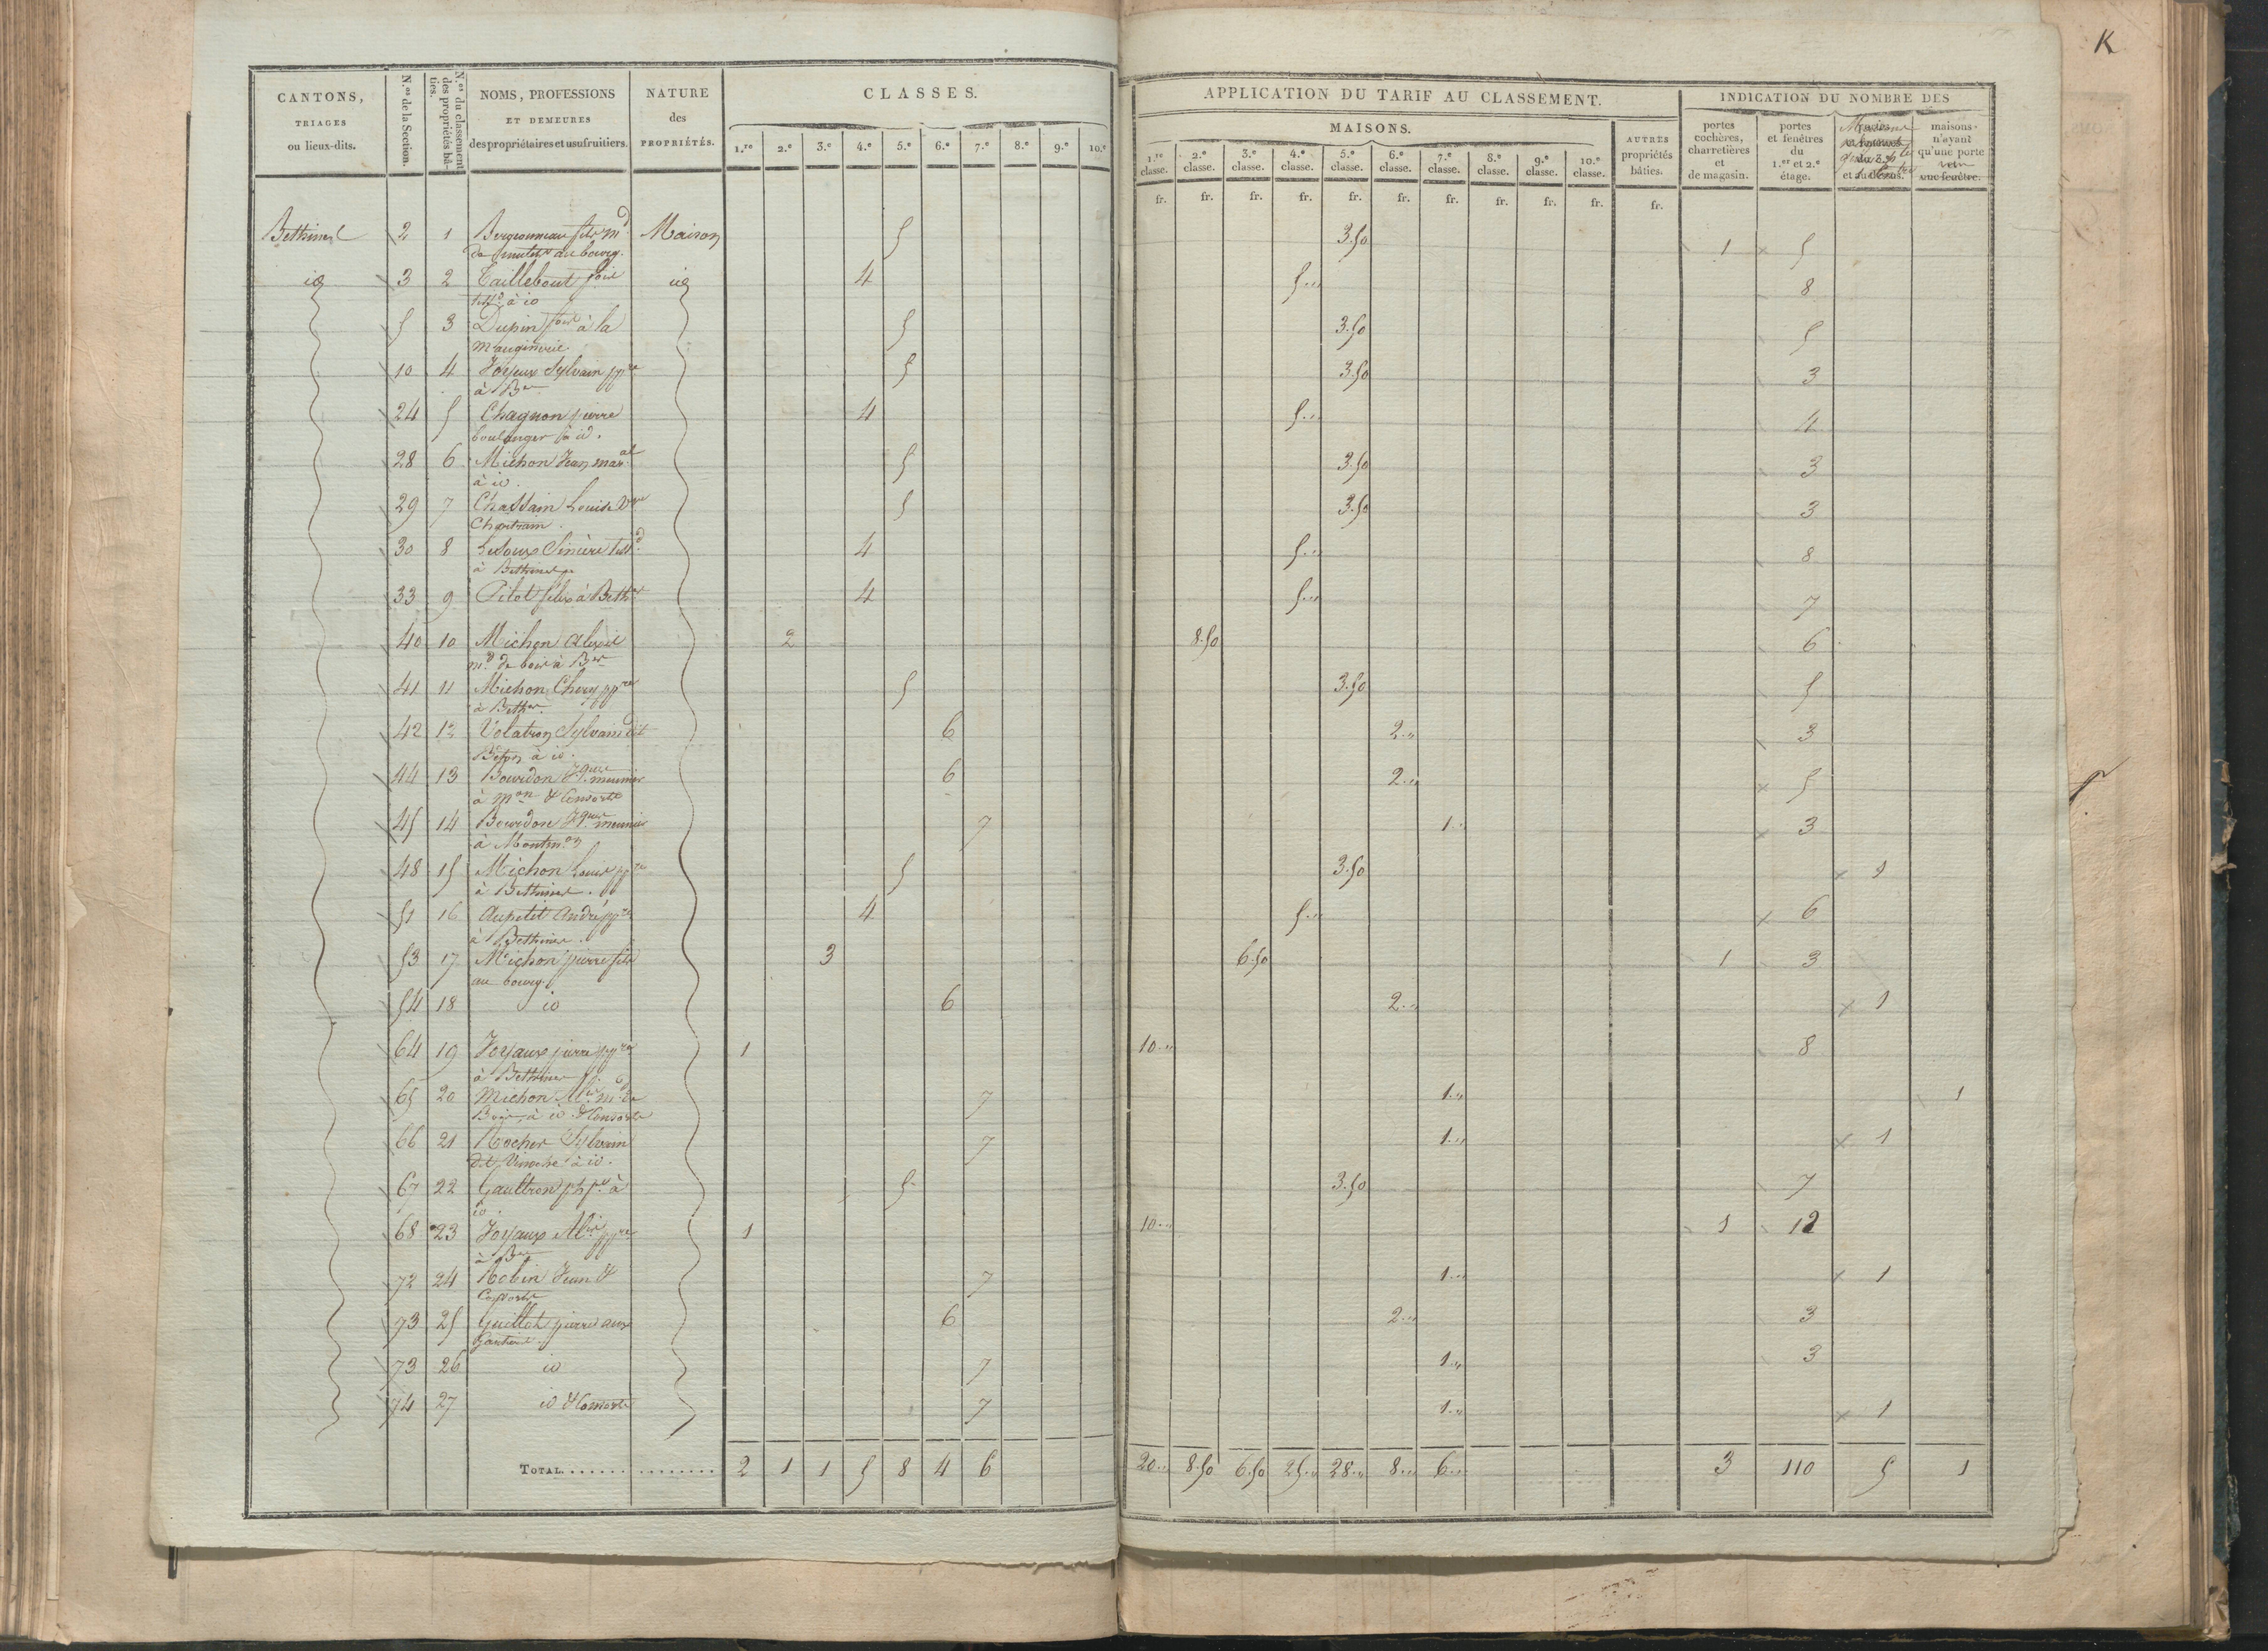 K
CANTONS,
TRIAGES
ou lieux-dits.
N.os de la Section.
N.os du classement
des propriétés bâ-
ties.
NOMS, PROFESSIONS
ET DEMEURES
des propriétaires et usufruitiers.
NATURE
des
PROPRIÉTÉS.
CLASSES.
1.re 2.e 3.e 4.e 5.e 6.e 7.e 8.e 9.e 10.e
APPLICATION DU TARIF AU CLASSEMENT.
MAISONS.
1.re classe. 2.e classe. 3.e classe. 4.e classe. 5.e classe. 6.e classe. 7.e classe. 8.e classe. 9.e classe. 10.e classe.
AUTRES
propriétés
bâties.
fr. fr. fr. fr. fr. fr. fr. fr. fr. fr. fr.
INDICATION DU NOMBRE DES
portes
cochères,
charretières
et
de magasin.
portes
et fenêtres
du
1.er et 2.e
étage.
maisons
n'ayant
qu'une porte
une fenêtre.
2 1 Bergeonneau fils md Maison 5 3.50 1 5
au bourg.
id 3 2 Taillebout id 4 5.. 8
à id
5 3 Dupin à la 5 3.50 5
10 4 Joyeux Sylvain ppre 5 3.50 3
à Ber
24 5 Chagnon pierre 4 5.. 4
boulanger à id.
28 6 Michon Jean mar.al 5 3.50 3
à id.
29 7 Chassain Louise Vve 5 3.50 3
Chartrain.
30 8 4 5.. 8
à Bethines
33 9 Pilot felix à Beth.es 4 5.. 7
40 10 Michon Alexis 2 8.50 6
m.d de bois à Ber
41 11 Michon Chery ppre 5 3.50 5
à Beth.er
42 12 Volatron Sylvain dit 6 2.. 3
à id.
44 13 Bourdon Jques meunier 6 2.. 5
à Mon & Consorts
45 14 Bourdon Jques meunier 7 1.. 3
à Montm.on
48 15 Michon Louis ppre 5 3.50 1
à Bethines.
51 16 Aupetit André ppre 4 5.. 6
à Bethines.
53 17 Michon pierre fils 3 6.50 1 3
au bourg.
54 18 id 6 2.. 1
64 19 Joyaux pierre ppre 1 10.. 8
à Bethines
65 20 Michon Al.is m.d de 7 1.. 1
Bois à id & Consorts
66 21 Rocher Sylvain 7 1.. 1
dit Vinoche à id.
67 22 Gaultron ph.pe à 5 3.50 7
id
68 23 Joyaux Al.is ppre 1 10.. 1 12
à Ber
72 24 Robin Jean & 7 1.. 1
Consorts
73 25 Guillot pierre aux 6 2.. 3
73 26 id 7 1.. 3
74 27 id & Consorts 7 1.. 1
TOTAL 2 1 1 5 8 4 6 20.. 8.50 6.50 25.. 28.. 8.. 6.. 3 110 5 1